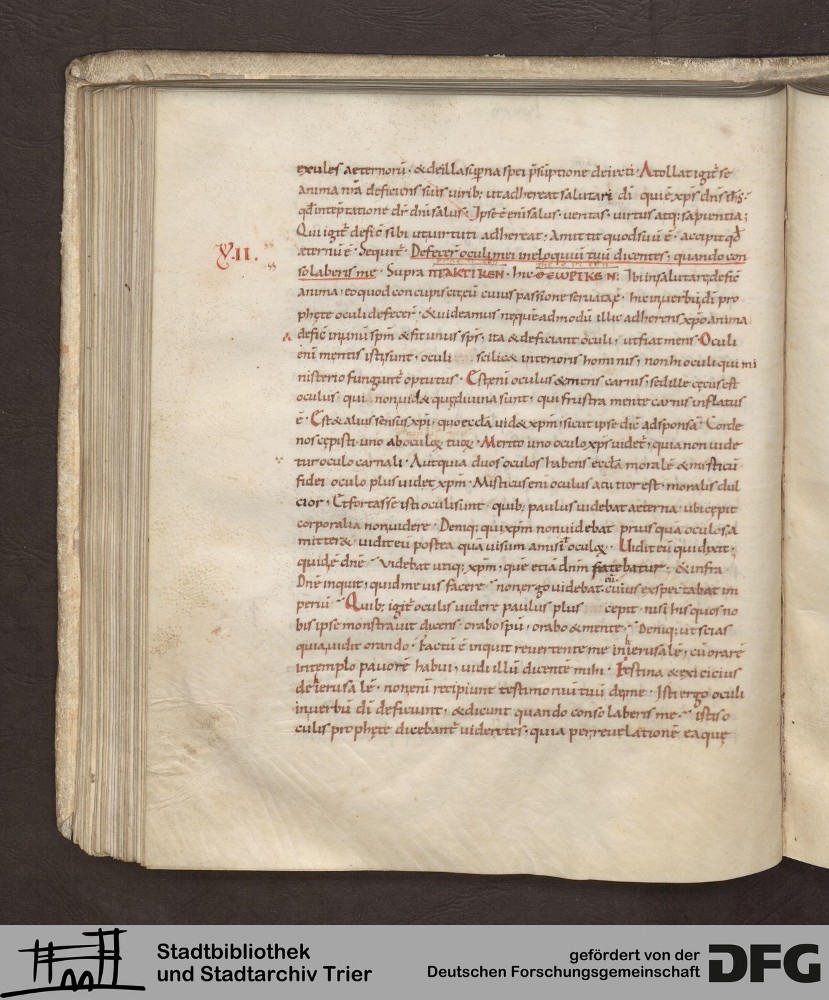 exules aeternorū · & de illa suꝑna spei p̄sūptione deiecti · Atollat igit̄ se
anima nr̄a deficiens suis virib; ut adhereat salutari dī qui ē xp̄s dn̄s ih̄s ·
qđ interp̄tatione dr̄ dn̄i salus · Ipse ē eni salus · ueritas · uirtus atq; sapientia;
Qui igit̄ defic̄ sibi ut uirtuti adhereat · Amittit quod suū ē · accipit qđ
XII. æternū ē · Sequit̄ · Defecer̄ oculi mei in eloquiū tuū dicentes, quando con
solaberis me · Supra ΠΡΑΚΤΙΚΕΝ · hic ΘΕΩΡΙΚΕΝ: Ibi in salutare defic̄
anima, eo quod concupiscit eū cuius passione seruata ē · hic in uerbū dī pro
phete oculi defecer̄ · & uideamus neque admodū illic adherens xp̄o anima
defic̄ in unū sp̄m & fit unus sp̄s, ita & deficiant oculi, ut fiat mens · Oculi
eni mentis isti sunt, oculi scilic& interioris hominis, non hi oculi qui mi
nisterio fungunt̄ optutus · Est eni oculus & mens carnis, sed ille cęcus est
oculus qui non uid& quę diuina sunt, qui frustra mente carnis inflatus
ē · Est & alius sensus xp̄i, quo eccła uid& xp̄m, sicut ipse dic̄ ad sponsā · Corde
nos cępisti uno ab oculoꝝ tuoꝝ · Merito uno oculo xp̄s uidet̄, quia non uide
tur oculo carnali · Aut quia duos oculos habens eccła moralē & misticū
fidei oculo plus uidet xp̄m · Misticus eni oculus acutior est · moralis dul
cior · Et fortasse isti oculi sunt · quib; paulus uidebat aeterna · ubi cępit
corporalia non uidere · Deniq; qui xp̄m non uidebat priusquā oculos a
mitter& · uidit eū postea quā uisum amisit oculoꝝ · Uidit eū qui dixit,
quid ē dn̄e uidebat utiq; xp̄m, quē etiā dn̄m fatebatur, & infra
Dn̄e inquit, quid me uis facere non ergo uidebat eū · cuius exspectabat im
periū · Quib; igit̄ oculis uidere paulus plus cepit · nisi his quos no
bis ipse monstrauit dicens · orabo spū, orabo & mente · Deniq; ut scias
quia uidit orando · Factū ē inquit reuertente me in hierusalē, cū orarē
in templo pauorē habui, uidi illū dicentē mihi · Festina & exi cicius
de hierusalē · non eni recipiunt testimoniū tuū de me · Isti ergo oculi
in uerbū dī deficiunt, & dicunt quando consolaberis me · istis o
culis prophete dicebant̄ uidentes, quia per reuelationē ea quę
Stadtbibliothek
und Stadtarchiv Trier
gefördert von der
Deutschen Forschungsgemeinschaft
DFG